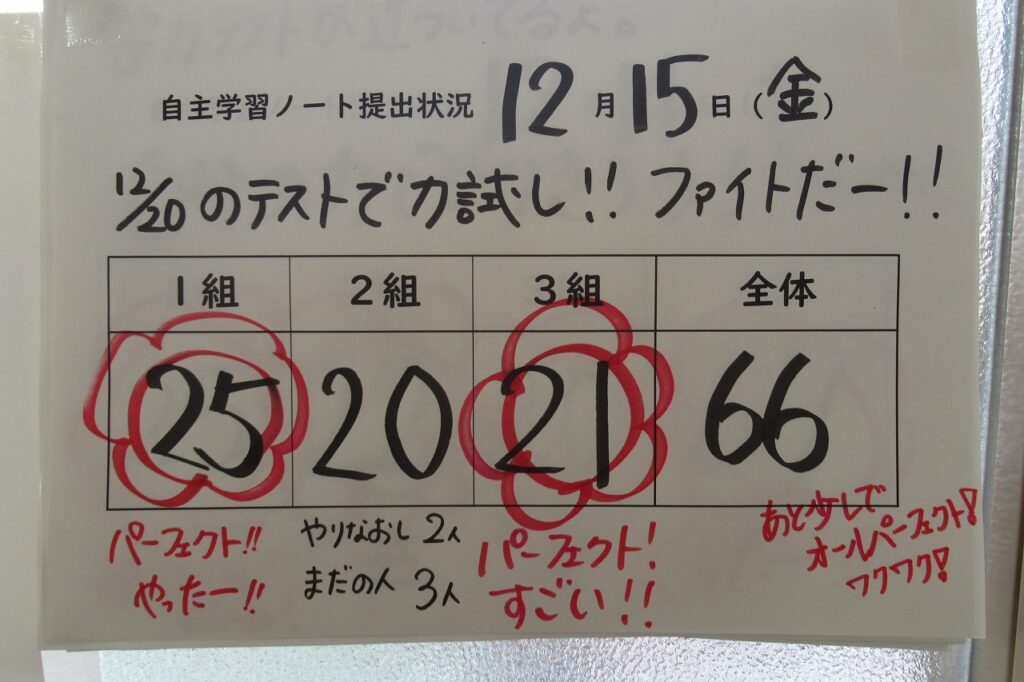 自主学習ノート提出状況 12月15日(金)
12/20のテストで力試し!! ファイトだー!!
1組 2組 3組 全体
25 20 21 66
パーフェクト!!
やったー!!
やりなおし 2人
まだの人 3人
パーフェクト!
すごい!!
あと少しで
オールパーフェクト!
ワクワク!